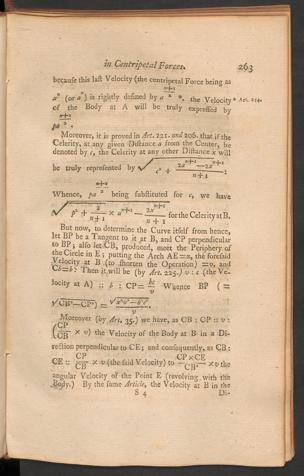 in Centripetal Forces. 263
because this last Velocity (the centripetal Force being as
aⁿ (or aⁿ) is rightly defined by a^{(n+1)/2}, the Velocity * Art. 214.
of the Body at A will be truly expressed by
pa^{(n+1)/2}.
Moreover, it is proved in Art. 221. and 206. that if the
Celerity, at any given Distance a from the Center, be
denoted by c, the Celerity at any other Distance x will
be truly represented by √(c² + (2a^{n+1} − 2x^{n+1})/(n+1)):
Whence, pa^{(n+1)/2} being substituted for c, we have
√(p² + 2/(n+1) × a^{n+1} − 2x^{n+1}/(n+1)) for the Celerity at B.
But now, to determine the Curve itself from hence,
let BP be a Tangent to it at B, and CP perpendicular
to BP; also let CB, produced, meet the Periphery of
the Circle in E; putting the Arch AE=z, the foresaid
Velocity at B (to shorten the Operation) =v, and
Cb=b: Then it will be (by Art. 225.) v : c (the Ve-
locity at A) :: b : CP = bc/v. Whence BP (=
√(CB²−CP²)) = √(x²v²−b²c²)/v.
Moreover (by Art. 35.) we have, as CB : CP :: v :
(CP/CB × v) the Velocity of the Body at B in a Di-
rection perpendicular to CE; and consequently, as CB :
CE :: CP/CB × v (the said Velocity) to CP×CE/CB² × v the
angular Velocity of the Point E (revolving with the
Body.) By the same Article, the Velocity at B in the
S 4 Di-